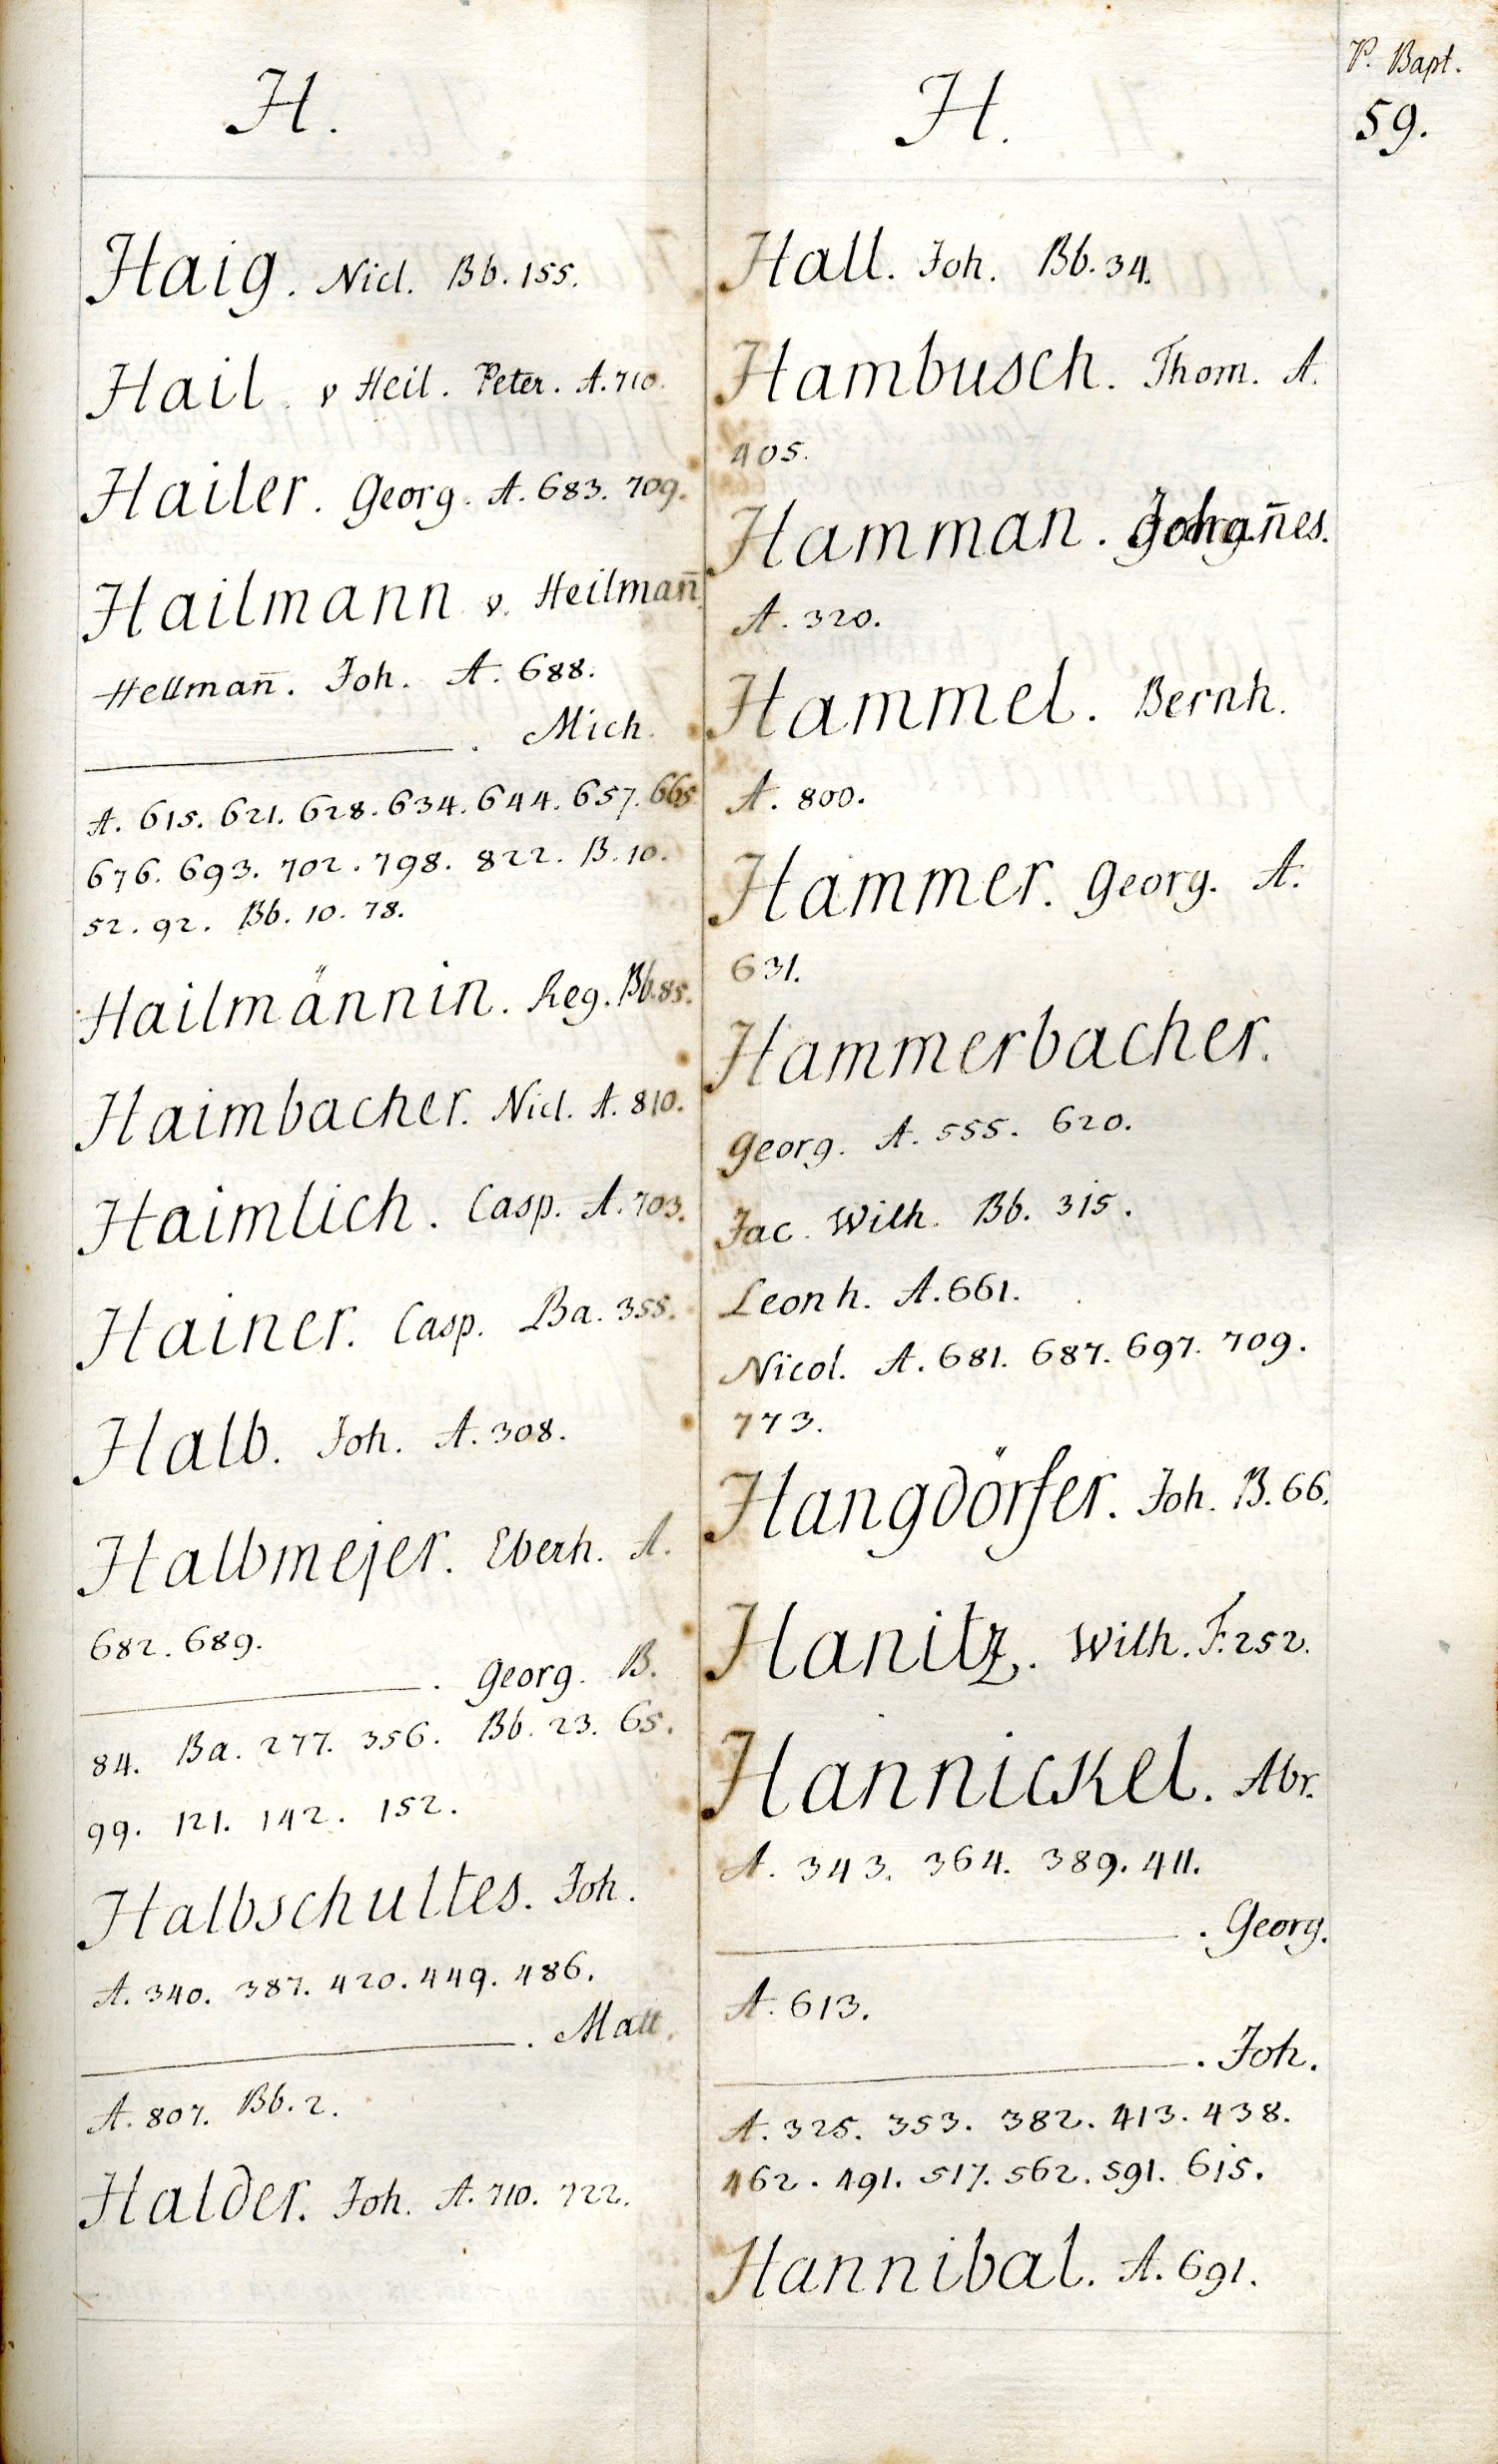 P. Bapt.
59.
H.
Haig. Nicl. Bb. 155.
Hail. v Heil. Peter. A. 710.
Hailer. Georg. A. 683. 709.
Hailmann v. Heilman̄
Hellman̄. Joh. A. 688.
———. Mich.
A. 615. 621. 628. 634. 644. 657. 665
676. 693. 702. 798. 822. B. 10.
52. 92. Bb. 10. 78.
Hailmännin. Reg. Bb. 85.
Haimbacher. Nicl. A. 810.
Haimlich. Casp. A. 703.
Hainer. Casp. Ba. 355.
Halb. Joh. A. 308.
Halbmejer. Eberh. A.
682. 689.
———. Georg. B.
84. Ba. 277. 356. Bb. 23. 65.
99. 121. 142. 152.
Halbschultes. Joh.
A. 340. 387. 420. 449. 486.
———. Matt.
A. 807. Bb. 2.
Halder. Joh. A. 710. 722.
H.
Hall. Joh. Bb. 34.
Hambusch. Thom. A.
405.
Hamman. Johan̄es.
A. 320.
Hammel. Bernh.
A. 800.
Hammer. Georg. A.
631.
Hammerbacher.
Georg. A. 555. 620.
Jac. Wilh. Bb. 315.
Leonh. A. 661.
Nicol. A. 681. 687. 697. 709.
773.
Hangdörfer. Joh. B. 66.
Hanitz. Wilh. F. 252.
Hannickel. Abr.
A. 343. 364. 389. 411.
———. Georg.
A. 613.
———. Joh.
A. 325. 353. 382. 413. 438.
462. 491. 517. 562. 591. 615.
Hannibal. A. 691.